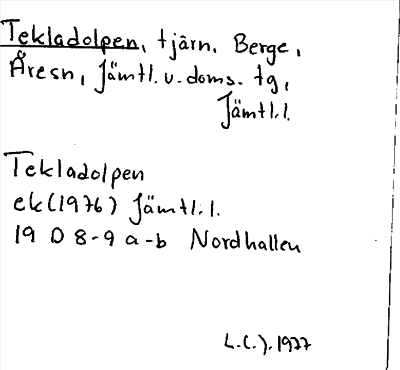 Tekladolpen, tjärn, Berge,
Åresn, Jämtl. v. doms. tg,
Jämtl.l.
Tekladolpen
ek(1976) Jämtl.l.
19 D 8-9 a-b Nordhallen
1977